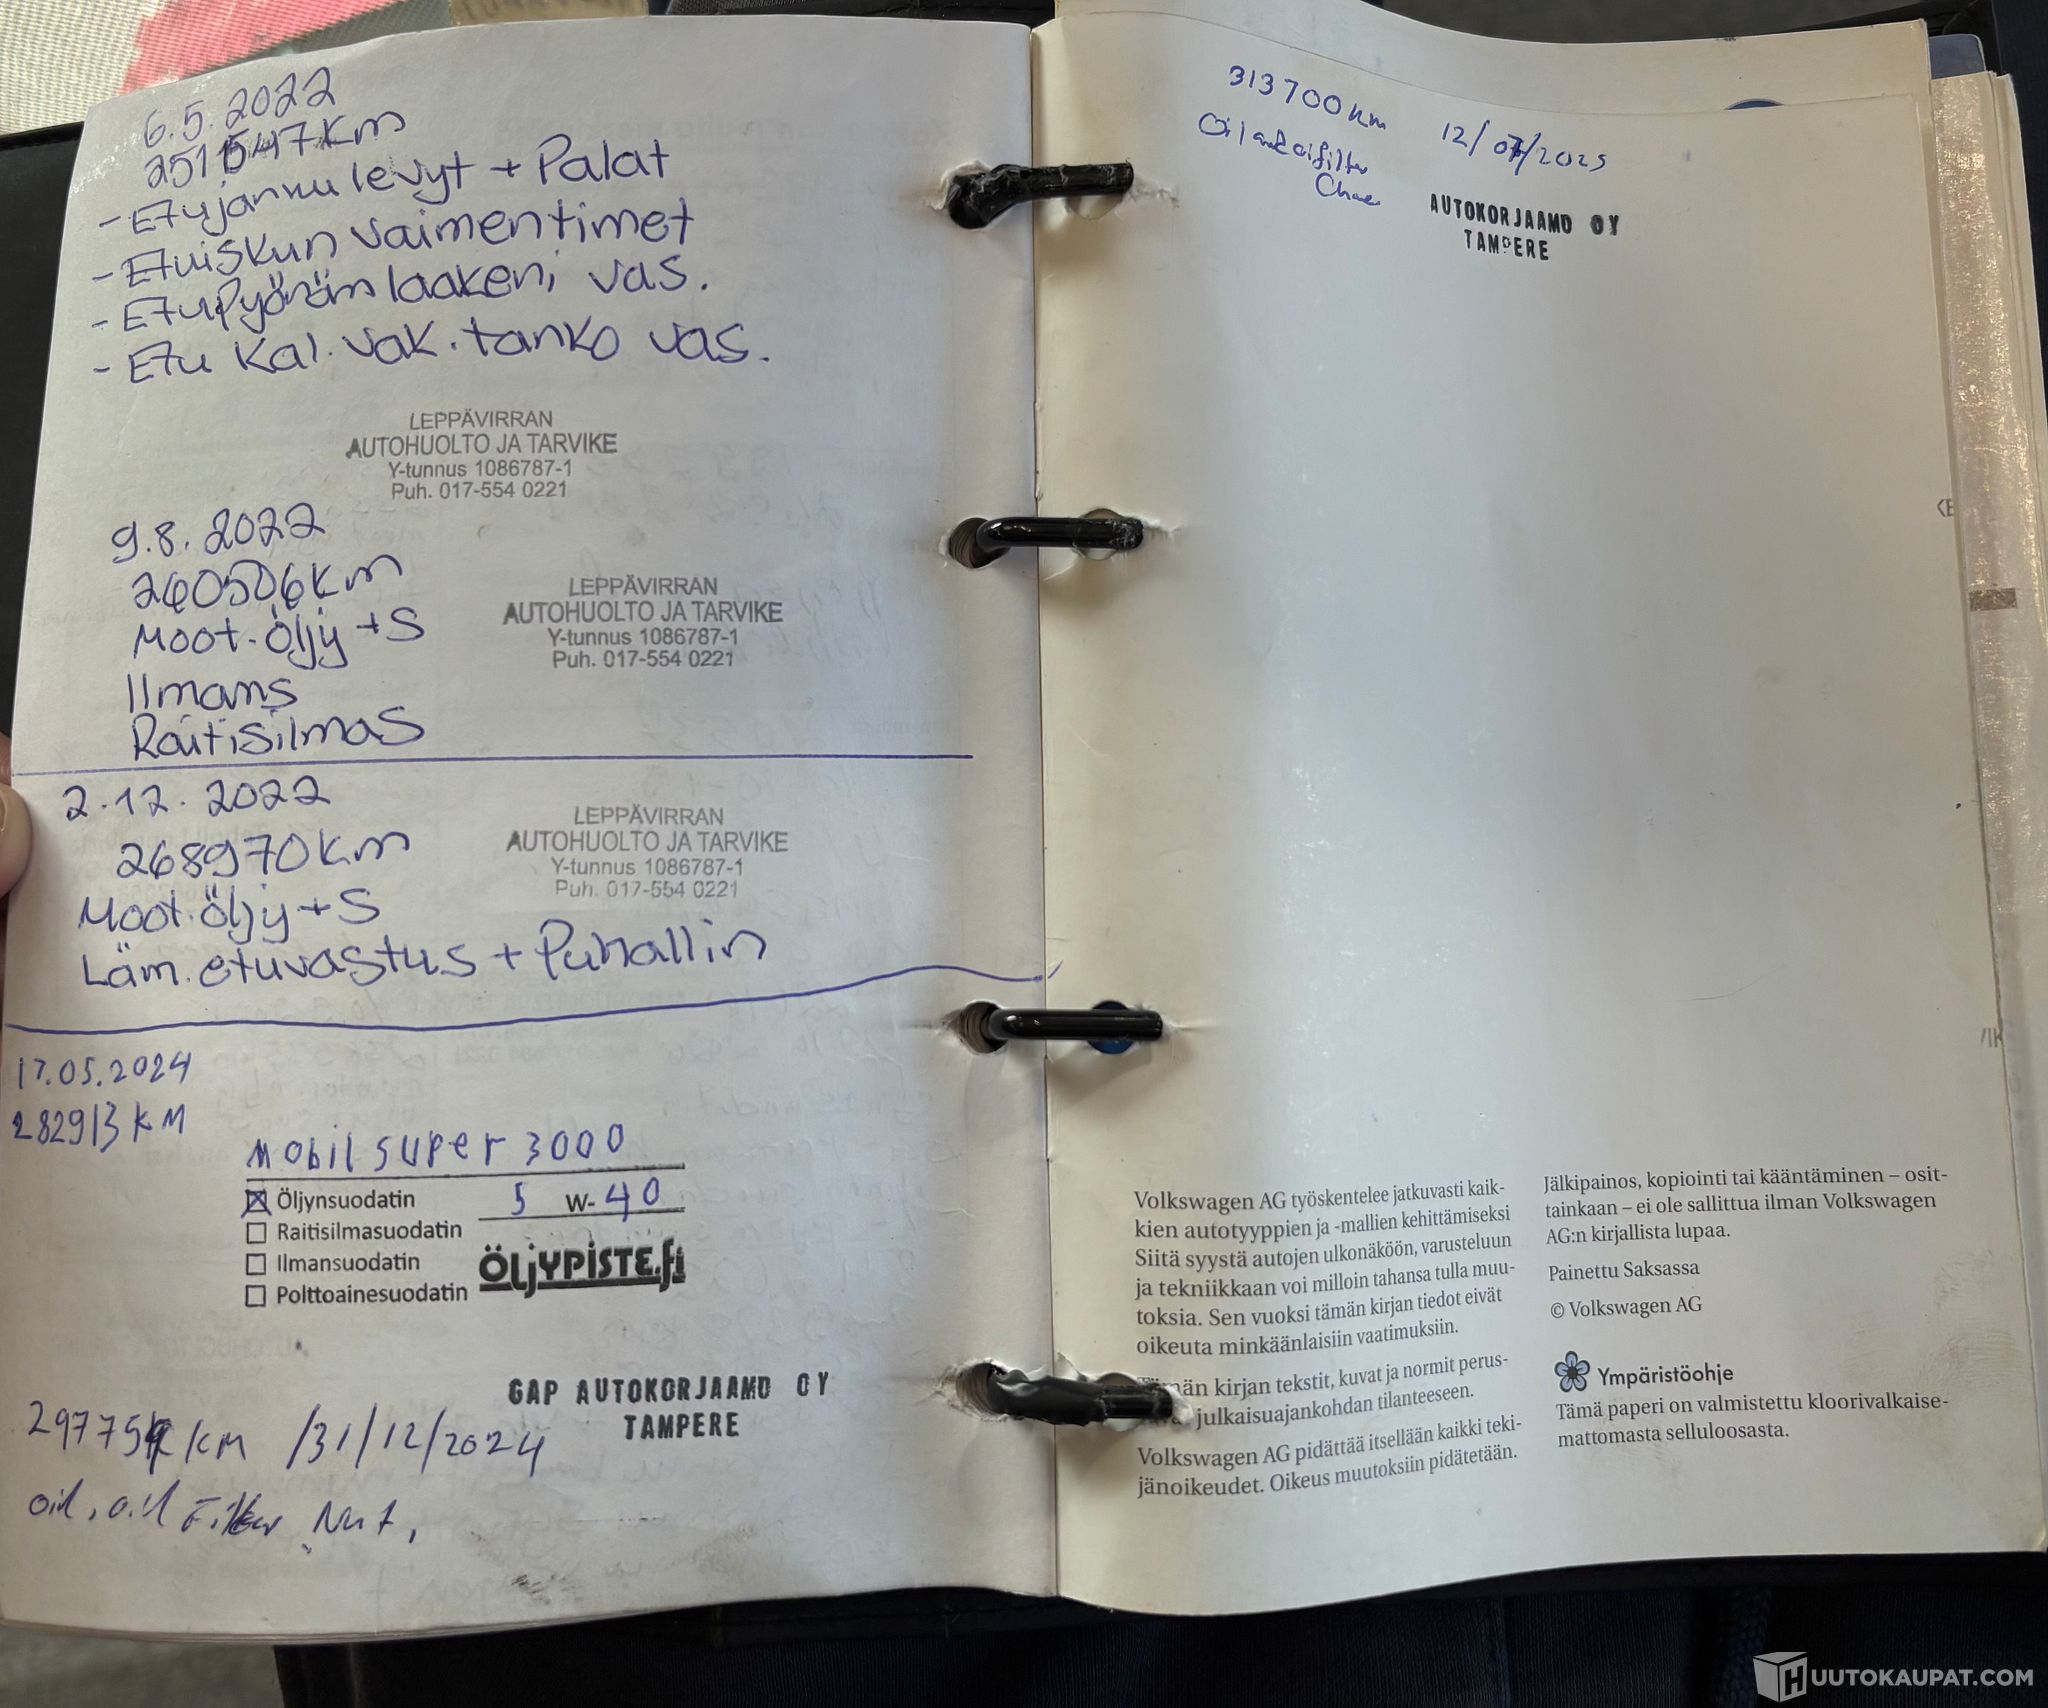 6.5.2022
251547km
- Etujarru levyt + Palat
- Etuiskun vaimentimet
- Etupyörän laakeri vas.
- Etu kal. vak. tanko vas.
LEPPÄVIRRAN
AUTOHUOLTO JA TARVIKE
Y-tunnus 1086787-1
Puh. 017-554 0221
9.8.2022
260506km
Moot.Öljy + S
Ilmans
Raitisilmas
LEPPÄVIRRAN
AUTOHUOLTO JA TARVIKE
Y-tunnus 1086787-1
Puh. 017-554 0221
2.12.2022
268970km
Moot.Öljy + S
Läm. etuvastus + Puhallin
LEPPÄVIRRAN
AUTOHUOLTO JA TARVIKE
Y-tunnus 1086787-1
Puh. 017-554 0221
17.05.2024
282913 KM
Mobil super 3000
Öljynsuodatin 5 W-40
Raitisilmasuodatin
Ilmansuodatin
Polttoainesuodatin
ÖLJYPISTE.fi
GAP AUTOKORJAAMO OY
TAMPERE
KM /31/12/2024
oil, oil Filter
313700km 12/07/2025
Oil
AUTOKORJAAMO OY
TAMPERE
Volkswagen AG työskentelee jatkuvasti kaik-
kien autotyyppien ja -mallien kehittämiseksi
Siitä syystä autojen ulkonäköön, varusteluun
ja tekniikkaan voi milloin tahansa tulla muu-
toksia. Sen vuoksi tämän kirjan tiedot eivät
oikeuta minkäänlaisiin vaatimuksiin.
kirjan tekstit, kuvat ja normit perus-
julkaisuajankohdan tilanteeseen.
Volkswagen AG pidättää itsellään kaikki teki-
jänoikeudet. Oikeus muutoksiin pidätetään.
Jälkipainos, kopiointi tai kääntäminen – osit-
tainkaan – ei ole sallittua ilman Volkswagen
AG:n kirjallista lupaa.
Painettu Saksassa
© Volkswagen AG
Ympäristöohje
Tämä paperi on valmistettu kloorivalkaise-
mattomasta selluloosasta.
HUUTOKAUPAT.COM